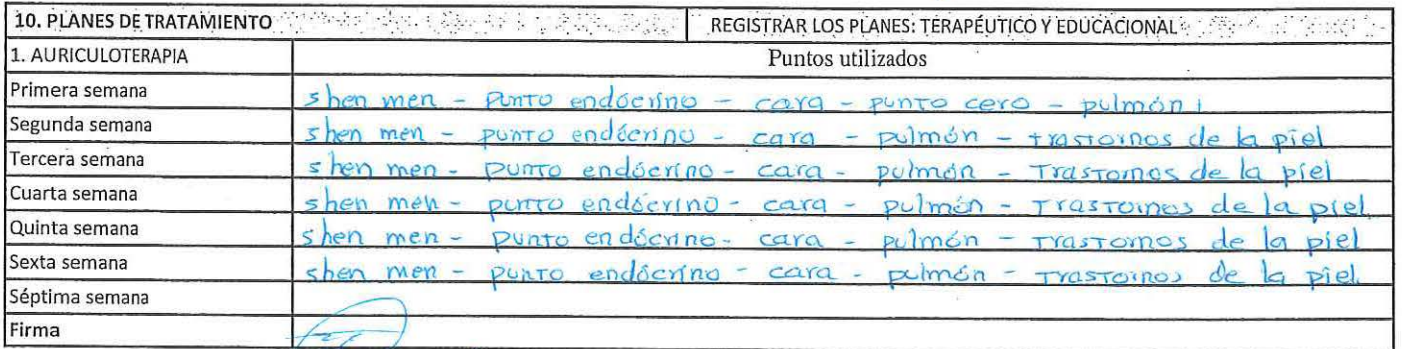 10. PLANES DE TRATAMIENTO REGISTRAR LOS PLANES: TERAPÉUTICO Y EDUCACIONAL
1. AURICULOTERAPIA Puntos utilizados
Primera semana shen men - punto endócrino - cara - punto cero - pulmón 1
Segunda semana shen men - punto endócrino - cara - pulmón - trastornos de la piel
Tercera semana shen men - punto endócrino - cara - pulmón - Trastornos de la piel
Cuarta semana shen men - punto endócrino - cara - pulmón - Trastornos de la piel
Quinta semana shen men - punto endócrino - cara - pulmón - Trastornos de la piel
Sexta semana shen men - punto endócrino - cara - pulmón - Trastornos de la piel.
Séptima semana
Firma